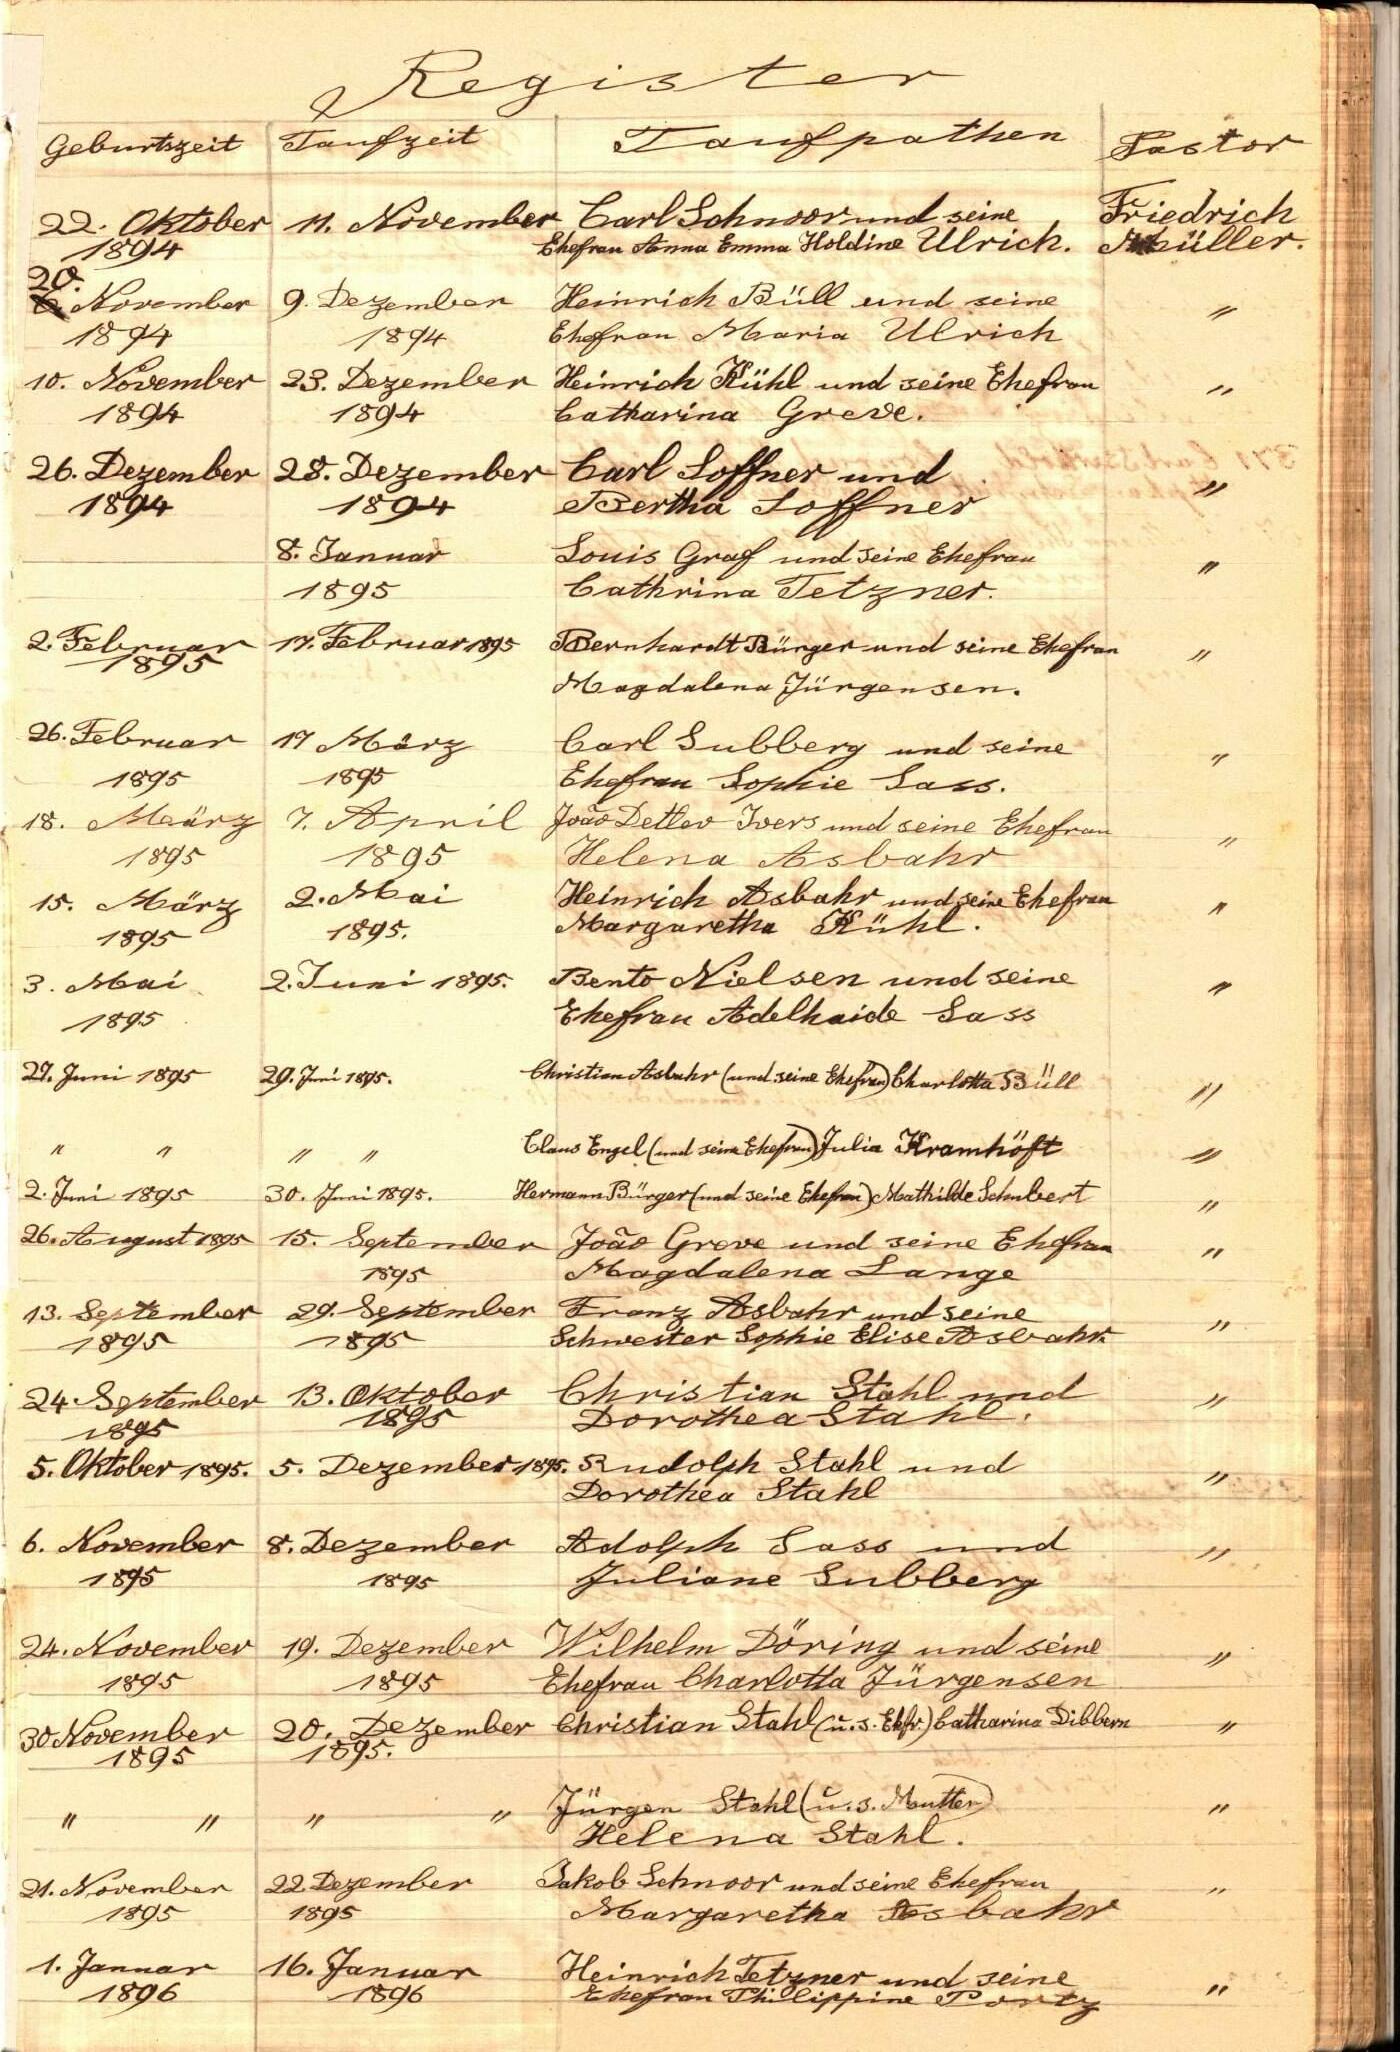 Register
Geburtszeit Taufzeit Taufpathen Pastor
22. Oktober 11. November Carl Schnoor und seine Friedrich
1894 Ehefrau Anna Emma Holdine Ulrich. Müller.
20.
November 9. Dezember Heinrich Büll und seine "
1894 1894 Ehefrau Maria Ulrich
10. November 23. Dezember Heinrich Kühl und seine Ehefrau "
1894 1894 Catharina Greve.
26. Dezember 28. Dezember Carl Loffner und "
1894 1894 Bertha Loffner
8. Januar Louis Graf und seine Ehefrau "
1895 Cathrina Tetzner.
2. Februar 17. Februar 1895 Bernhardt Bürger und seine Ehefrau "
1895 Magdalena Jürgensen.
26. Februar 17 März Carl Lubberg und seine "
1895 1895 Ehefrau Sophie Sass.
18. März 7. April João Detlev Ivers und seine Ehefrau "
1895 1895 Helena Asbahr
15. März 2. Mai Heinrich Asbahr und seine Ehefrau "
1895 1895. Margaretha Kühl.
3. Mai 2. Juni 1895. Bento Nielsen und seine "
1895 Ehefrau Adelhaide Sass
27. Juni 1895 29. Juni 1895. Christian Asbahr (und seine Ehefrau) Charlotta Büll "
" " " " Claus Engel (und seine Ehefrau) Julia Kramhöft "
2. Juni 1895 30. Juni 1895. Hermann Bürger (und seine Ehefrau) Mathilde Schubert "
26. August 1895 15. September João Greve und seine Ehefrau "
1895 Magdalena Lange
13. September 29. September Franz Asbahr und seine "
1895 1895 Schwester Sophie Elise Asbahr.
24. September 13. Oktober Christian Stahl und "
1895 1895 Dorothea Stahl.
5. Oktober 1895. 5. Dezember 1895. Rudolph Stahl und "
Dorothea Stahl
6. November 8. Dezember Adolph Sass und "
1895 1895 Juliane Lubberg
24. November 19. Dezember Wilhelm Döring und seine "
1895 1895 Ehefrau Charlotta Jürgensen
30 November 20. Dezember Christian Stahl (u. s. Ehfr.) Catharina Dibbern "
1895 1895.
" " " " Jürgen Stahl (u. s. Mutter) "
Helena Stahl.
21. November 22 Dezember Jakob Schnoor und seine Ehefrau "
1895 1895 Margaretha Asbahr
1. Januar 16. Januar Heinrich Tetzner und seine "
1896 1896 Ehefrau Philippine Portz